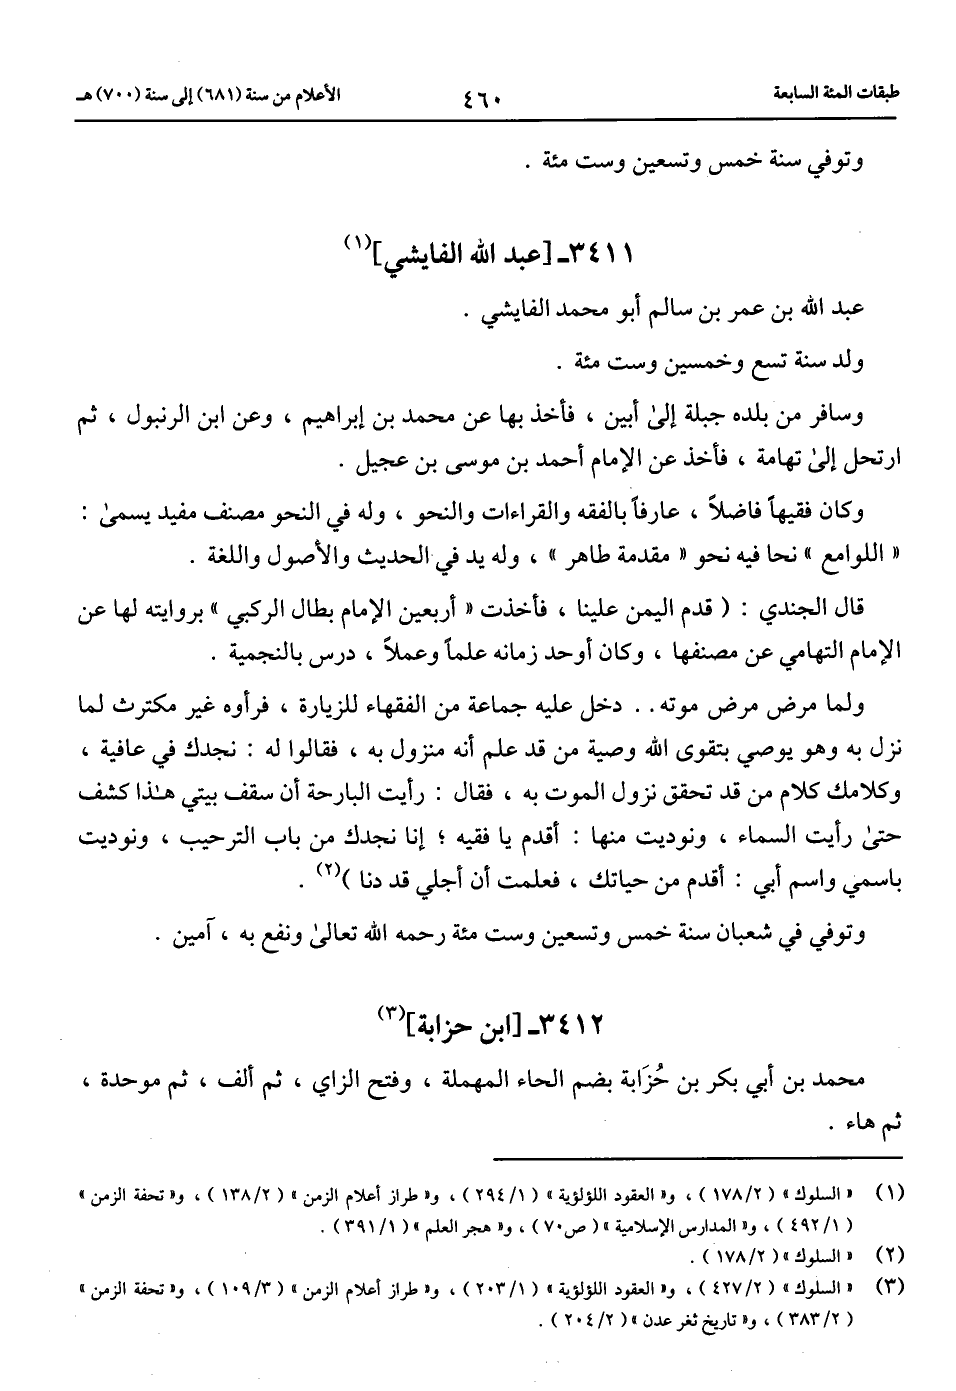 طبقات المئة السابعة ٤٦٠ الأعلام من سنة (٦٨١) إلى سنة (٧٠٠) هـ
وتوفي سنة خمس وتسعين وست مئة .
٣٤١١ـ [عبد الله الفايشي](١)
عبد الله بن عمر بن سالم أبو محمد الفايشي .
ولد سنة تسع وخمسين وست مئة .
وسافر من بلده جبلة إلىٰ أبين ، فأخذ بها عن محمد بن إبراهيم ، وعن ابن الرنبول ، ثم
ارتحل إلىٰ تهامة ، فأخذ عن الإمام أحمد بن موسى بن عجيل .
وكان فقيهاً فاضلاً ، عارفاً بالفقه والقراءات والنحو ، وله في النحو مصنف مفيد يسمىٰ :
« اللوامع » نحا فيه نحو « مقدمة طاهر » ، وله يد في الحديث والأصول واللغة .
قال الجندي : ( قدم اليمن علينا ، فأخذت « أربعين الإمام بطال الركبي » بروايته لها عن
الإمام التهامي عن مصنفها ، وكان أوحد زمانه علماً وعملاً ، درس بالنجمية .
ولما مرض مرض موته . . دخل عليه جماعة من الفقهاء للزيارة ، فرأوه غير مكترث لما
نزل به وهو يوصي بتقوى الله وصية من قد علم أنه منزول به ، فقالوا له : نجدك في عافية ،
وكلامك كلام من قد تحقق نزول الموت به ، فقال : رأيت البارحة أن سقف بيتي هـٰذا كشف
حتىٰ رأيت السماء ، ونوديت منها : أقدم يا فقيه ؛ إنا نجدك من باب الترحيب ، ونوديت
باسمي واسم أبي : أقدم من حياتك ، فعلمت أن أجلي قد دنا )(٢) .
وتوفي في شعبان سنة خمس وتسعين وست مئة رحمه الله تعالىٰ ونفع به ، آمين .
٣٤١٢ـ [ابن حزابة](٣)
محمد بن أبي بكر بن حُزَابة بضم الحاء المهملة ، وفتح الزاي ، ثم ألف ، ثم موحدة ،
ثم هاء .
(١) « السلوك » ( ١٧٨/٢ ) ، و« العقود اللؤلؤية » ( ٢٩٤/١ ) ، و« طراز أعلام الزمن » ( ١٣٨/٢ ) ، و« تحفة الزمن »
( ٤٩٢/١ ) ، و« المدارس الإسلامية » ( ص٧٠ ) ، و« هجر العلم » ( ٣٩١/١ ) .
(٢) « السلوك » ( ١٧٨/٢ ) .
(٣) « السلوك » ( ٤٢٧/٢ ) ، و« العقود اللؤلؤية » ( ٢٠٣/١ ) ، و« طراز أعلام الزمن » ( ١٠٩/٣ ) ، و« تحفة الزمن »
( ٣٨٣/٢ ) ، و« تاريخ ثغر عدن » ( ٢٠٤/٢ ) .